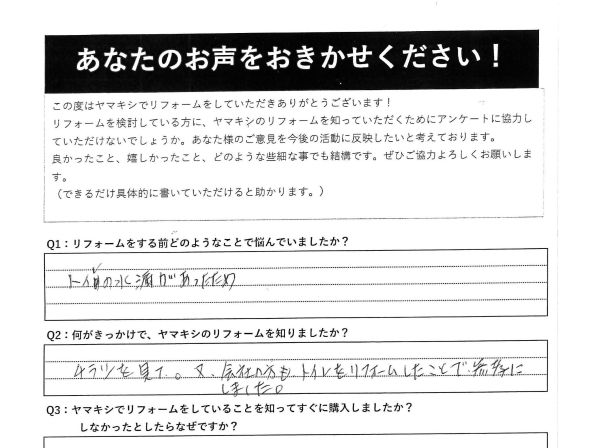 あなたのお声をおきかせください！
この度はヤマキシでリフォームをしていただきありがとうございます！
リフォームを検討している方に、ヤマキシのリフォームを知っていただくためにアンケートに協力し
ていただけないでしょうか。あなた様のご意見を今後の活動に反映したいと考えております。
良かったこと、嬉しかったこと、どのような些細な事でも結構です。ぜひご協力よろしくお願いしま
す。
（できるだけ具体的に書いていただけると助かります。）
Q1：リフォームをする前どのようなことで悩んでいましたか？
トイレの水漏があったため
Q2：何がきっかけで、ヤマキシのリフォームを知りましたか？
チラシを見て。又、会社の方もトイレをリフォームしたことで参考に
しました。
Q3：ヤマキシでリフォームをしていることを知ってすぐに購入しましたか？
しなかったとしたらなぜですか？